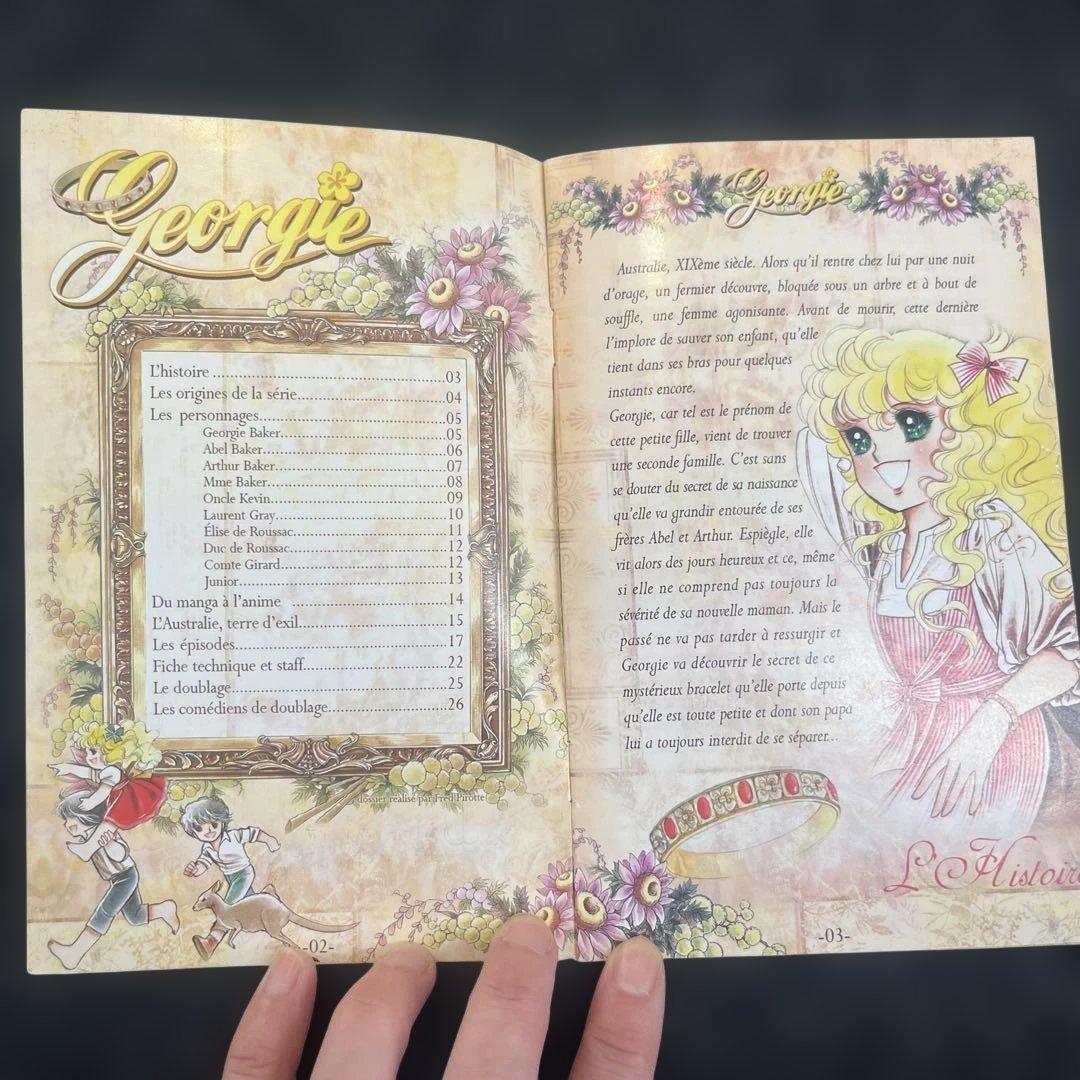 Georgie
L'histoire ......03
Les origines de la série......04
Les personnages......05
Georgie Baker......05
Abel Baker......06
Arthur Baker......07
Mme Baker......08
Oncle Kevin......09
Laurent Gray......10
Élise de Roussac......11
Duc de Roussac......12
Comte Girard......12
Junior......13
Du manga à l'anime ......14
L'Australie, terre d'exil......15
Les épisodes......17
Fiche technique et staff......22
Le doublage......25
Les comédiens de doublage......26
dossier réalisé par Fred Pirotte
-02-
Georgie
Australie, XIXème siècle. Alors qu'il rentre chez lui par une nuit
d'orage, un fermier découvre, bloquée sous un arbre et à bout de
souffle, une femme agonisante. Avant de mourir, cette dernière
l'implore de sauver son enfant, qu'elle
tient dans ses bras pour quelques
instants encore.
Georgie, car tel est le prénom de
cette petite fille, vient de trouver
une seconde famille. C'est sans
se douter du secret de sa naissance
qu'elle va grandir entourée de ses
frères Abel et Arthur. Espiègle, elle
vit alors des jours heureux et ce, même
si elle ne comprend pas toujours la
sévérité de sa nouvelle maman. Mais le
passé ne va pas tarder à ressurgir et
Georgie va découvrir le secret de ce
mystérieux bracelet qu'elle porte depuis
qu'elle est toute petite et dont son papa
lui a toujours interdit de se séparer...
L'Histoire
-03-